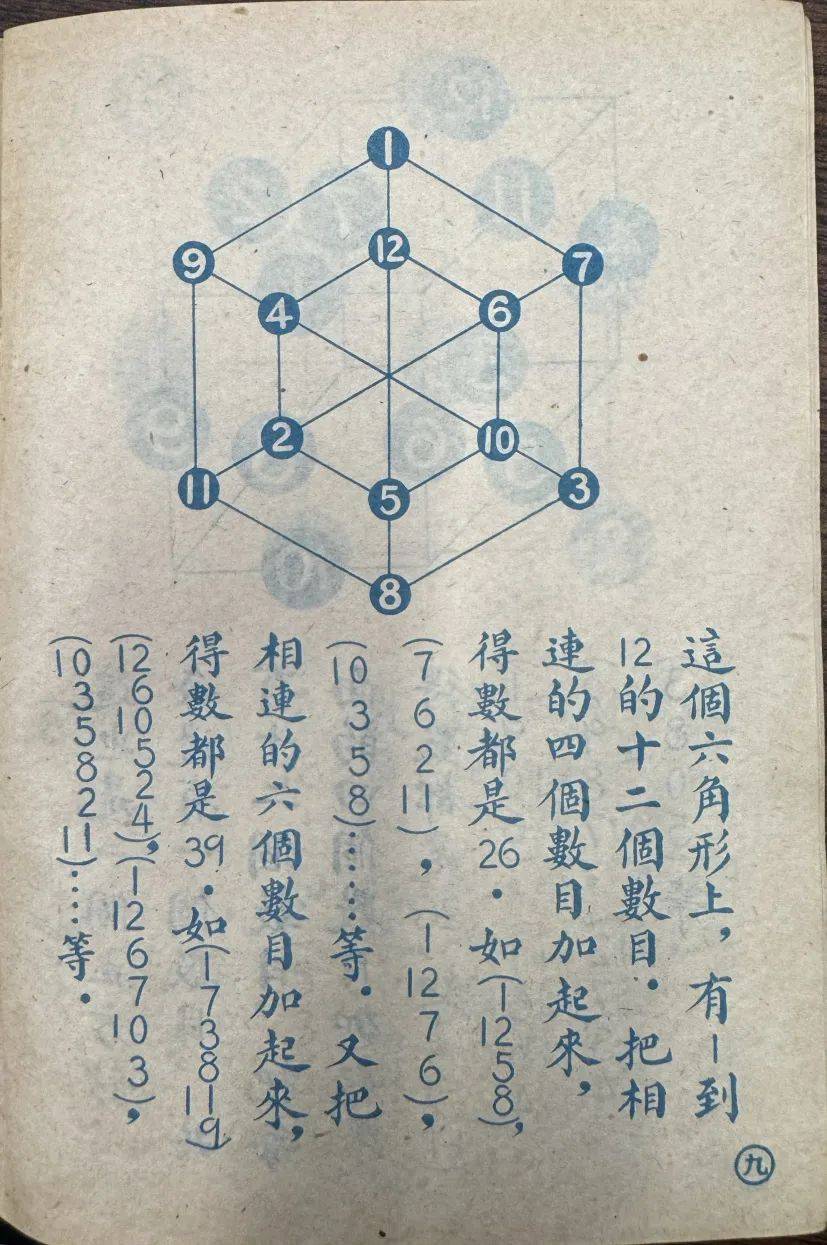 1
9
12
7
4
6
2
10
11
5
3
8
這個六角形上，有1到
12的十二個數目．把相
連的四個數目加起來，
得數都是26．如(1 12 5 8)，
(7 6 2 11)，(1 12 7 6)，
(10 3 5 8)……等．又把
相連的六個數目加起來，
得數都是39．如(1 7 3 8 11 9)
(12 6 10 5 2 4)，(1 12 6 7 10 3)，
(10 3 5 8 2 11)……等．
九